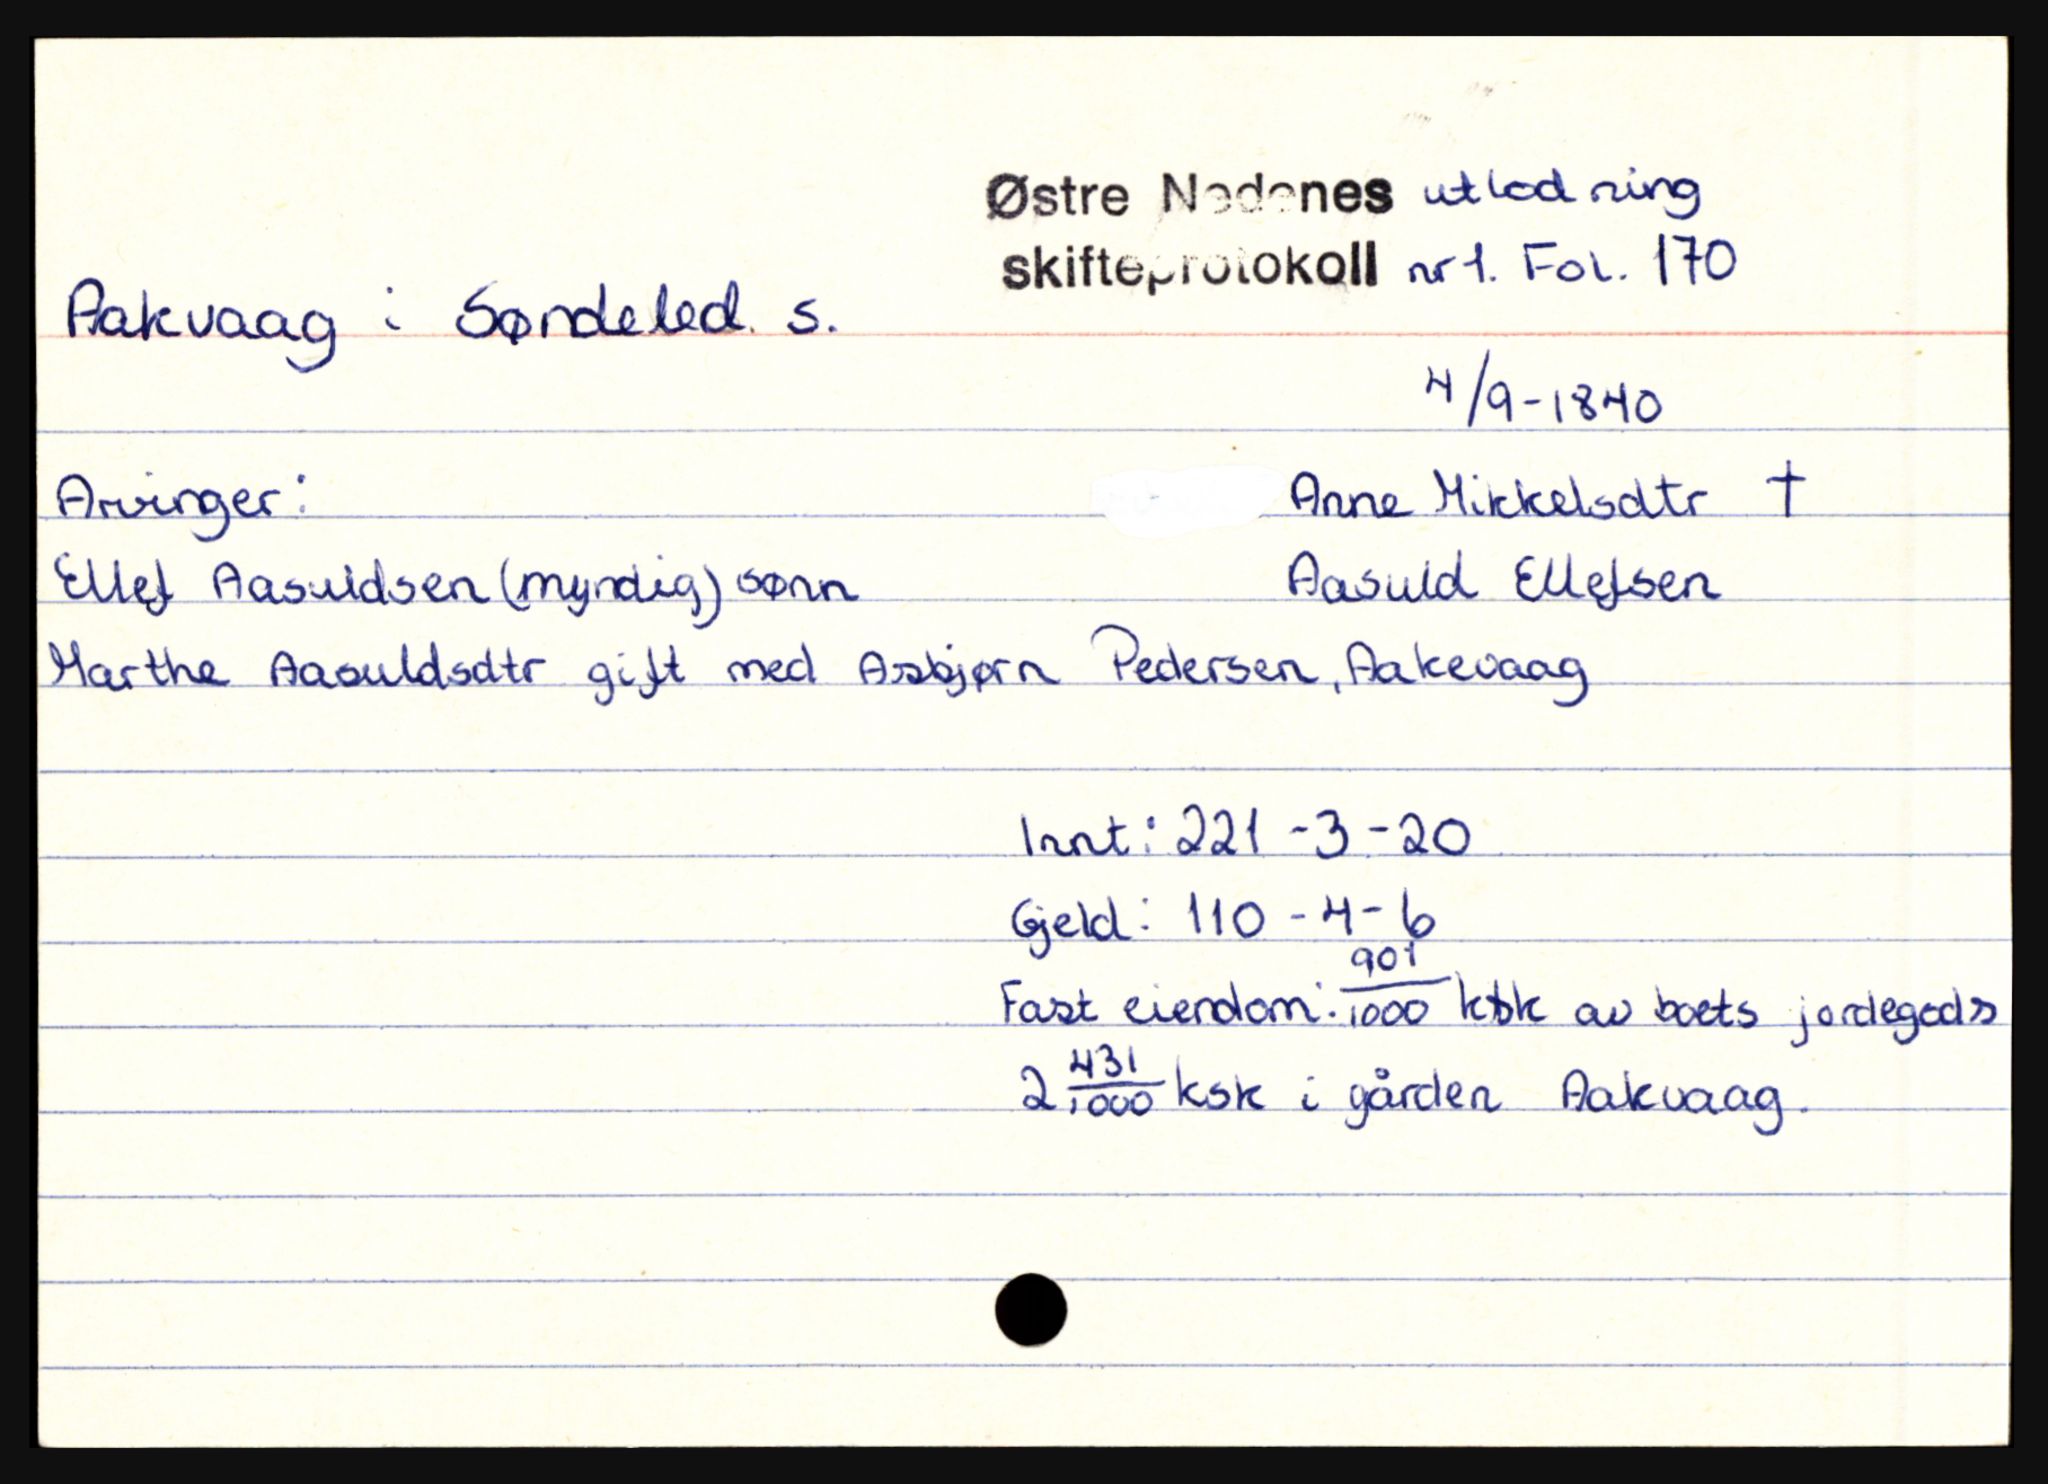 Østre Nedenes utlodning
skifteprotokoll nr 1. Fol. 170
Aakvaag i Søndeled. s.
4/9-1840
Arvinger: Anne Mikkelsdtr †
Ellef Aasuldsen (myndig) sønn Aasuld Ellefsen
Marthe Aasuldsdtr gift med Asbjørn Pedersen, Aakevaag
Innt: 221 - 3 - 20
Gjeld: 110 - 4 - 6
Fast eiendom: 901/1000 ksk av boets jordegods
2 431/1000 ksk i gården Aakvaag.